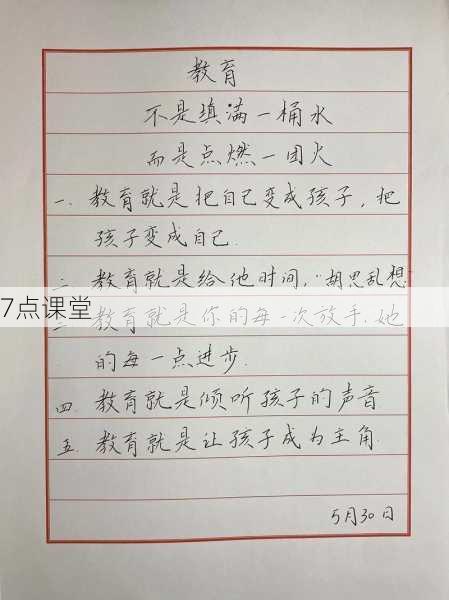 教育
不是填满一桶水
而是点燃一团火
一. 教育就是把自己变成孩子，把
孩子变成自己.
二. 教育就是给他时间，"胡思乱想"
7点课堂
三. 教育就是你的每一次放手.她
的每一点进步.
四. 教育就是倾听孩子的声音
五. 教育就是让孩子成为主角.
5月30日